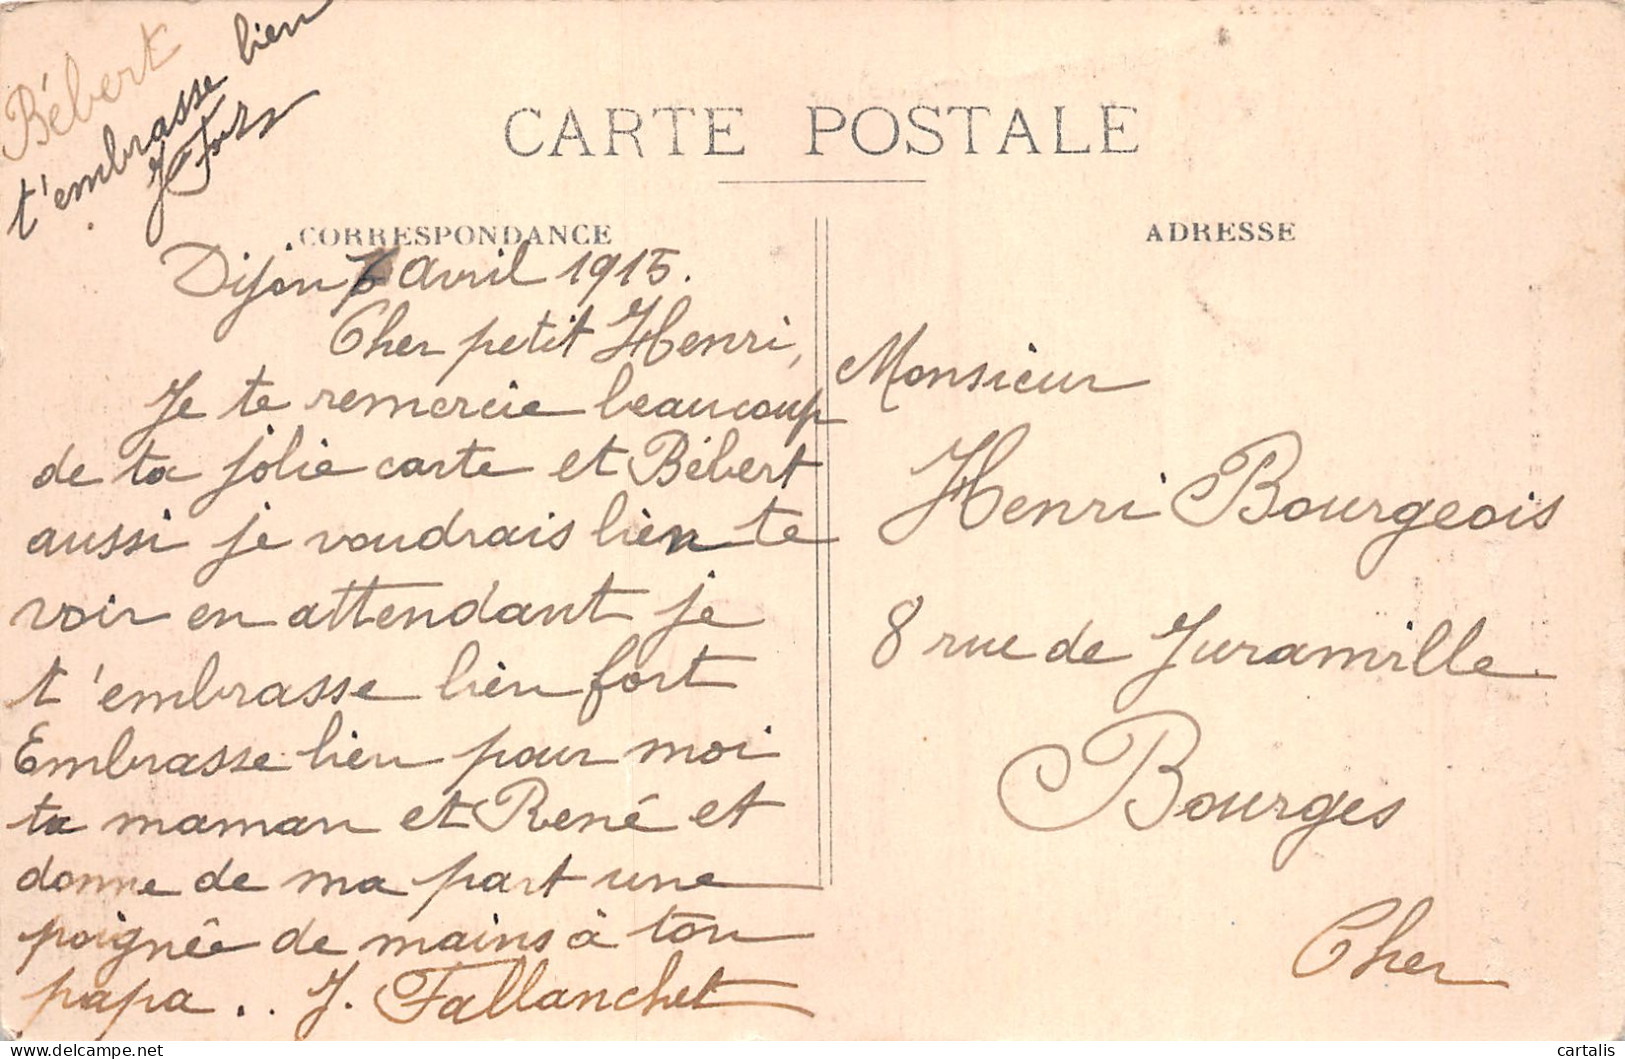 Bébert
t'embrasse bien
CARTE POSTALE
CORRESPONDANCE
ADRESSE
Dijon 6 avril 1915.
Cher petit Henri,
Je te remercie beaucoup
de ta jolie carte et Bébert
aussi je voudrais bien te
voir en attendant je
t'embrasse bien fort
Embrasse bien pour moi
ta maman et René et
donne de ma part une
poignée de mains à ton
papa.. J. Fallanchet
Monsieur
Henri Bourgeois
8 rue de Juranville
Bourges
Cher
cartalis